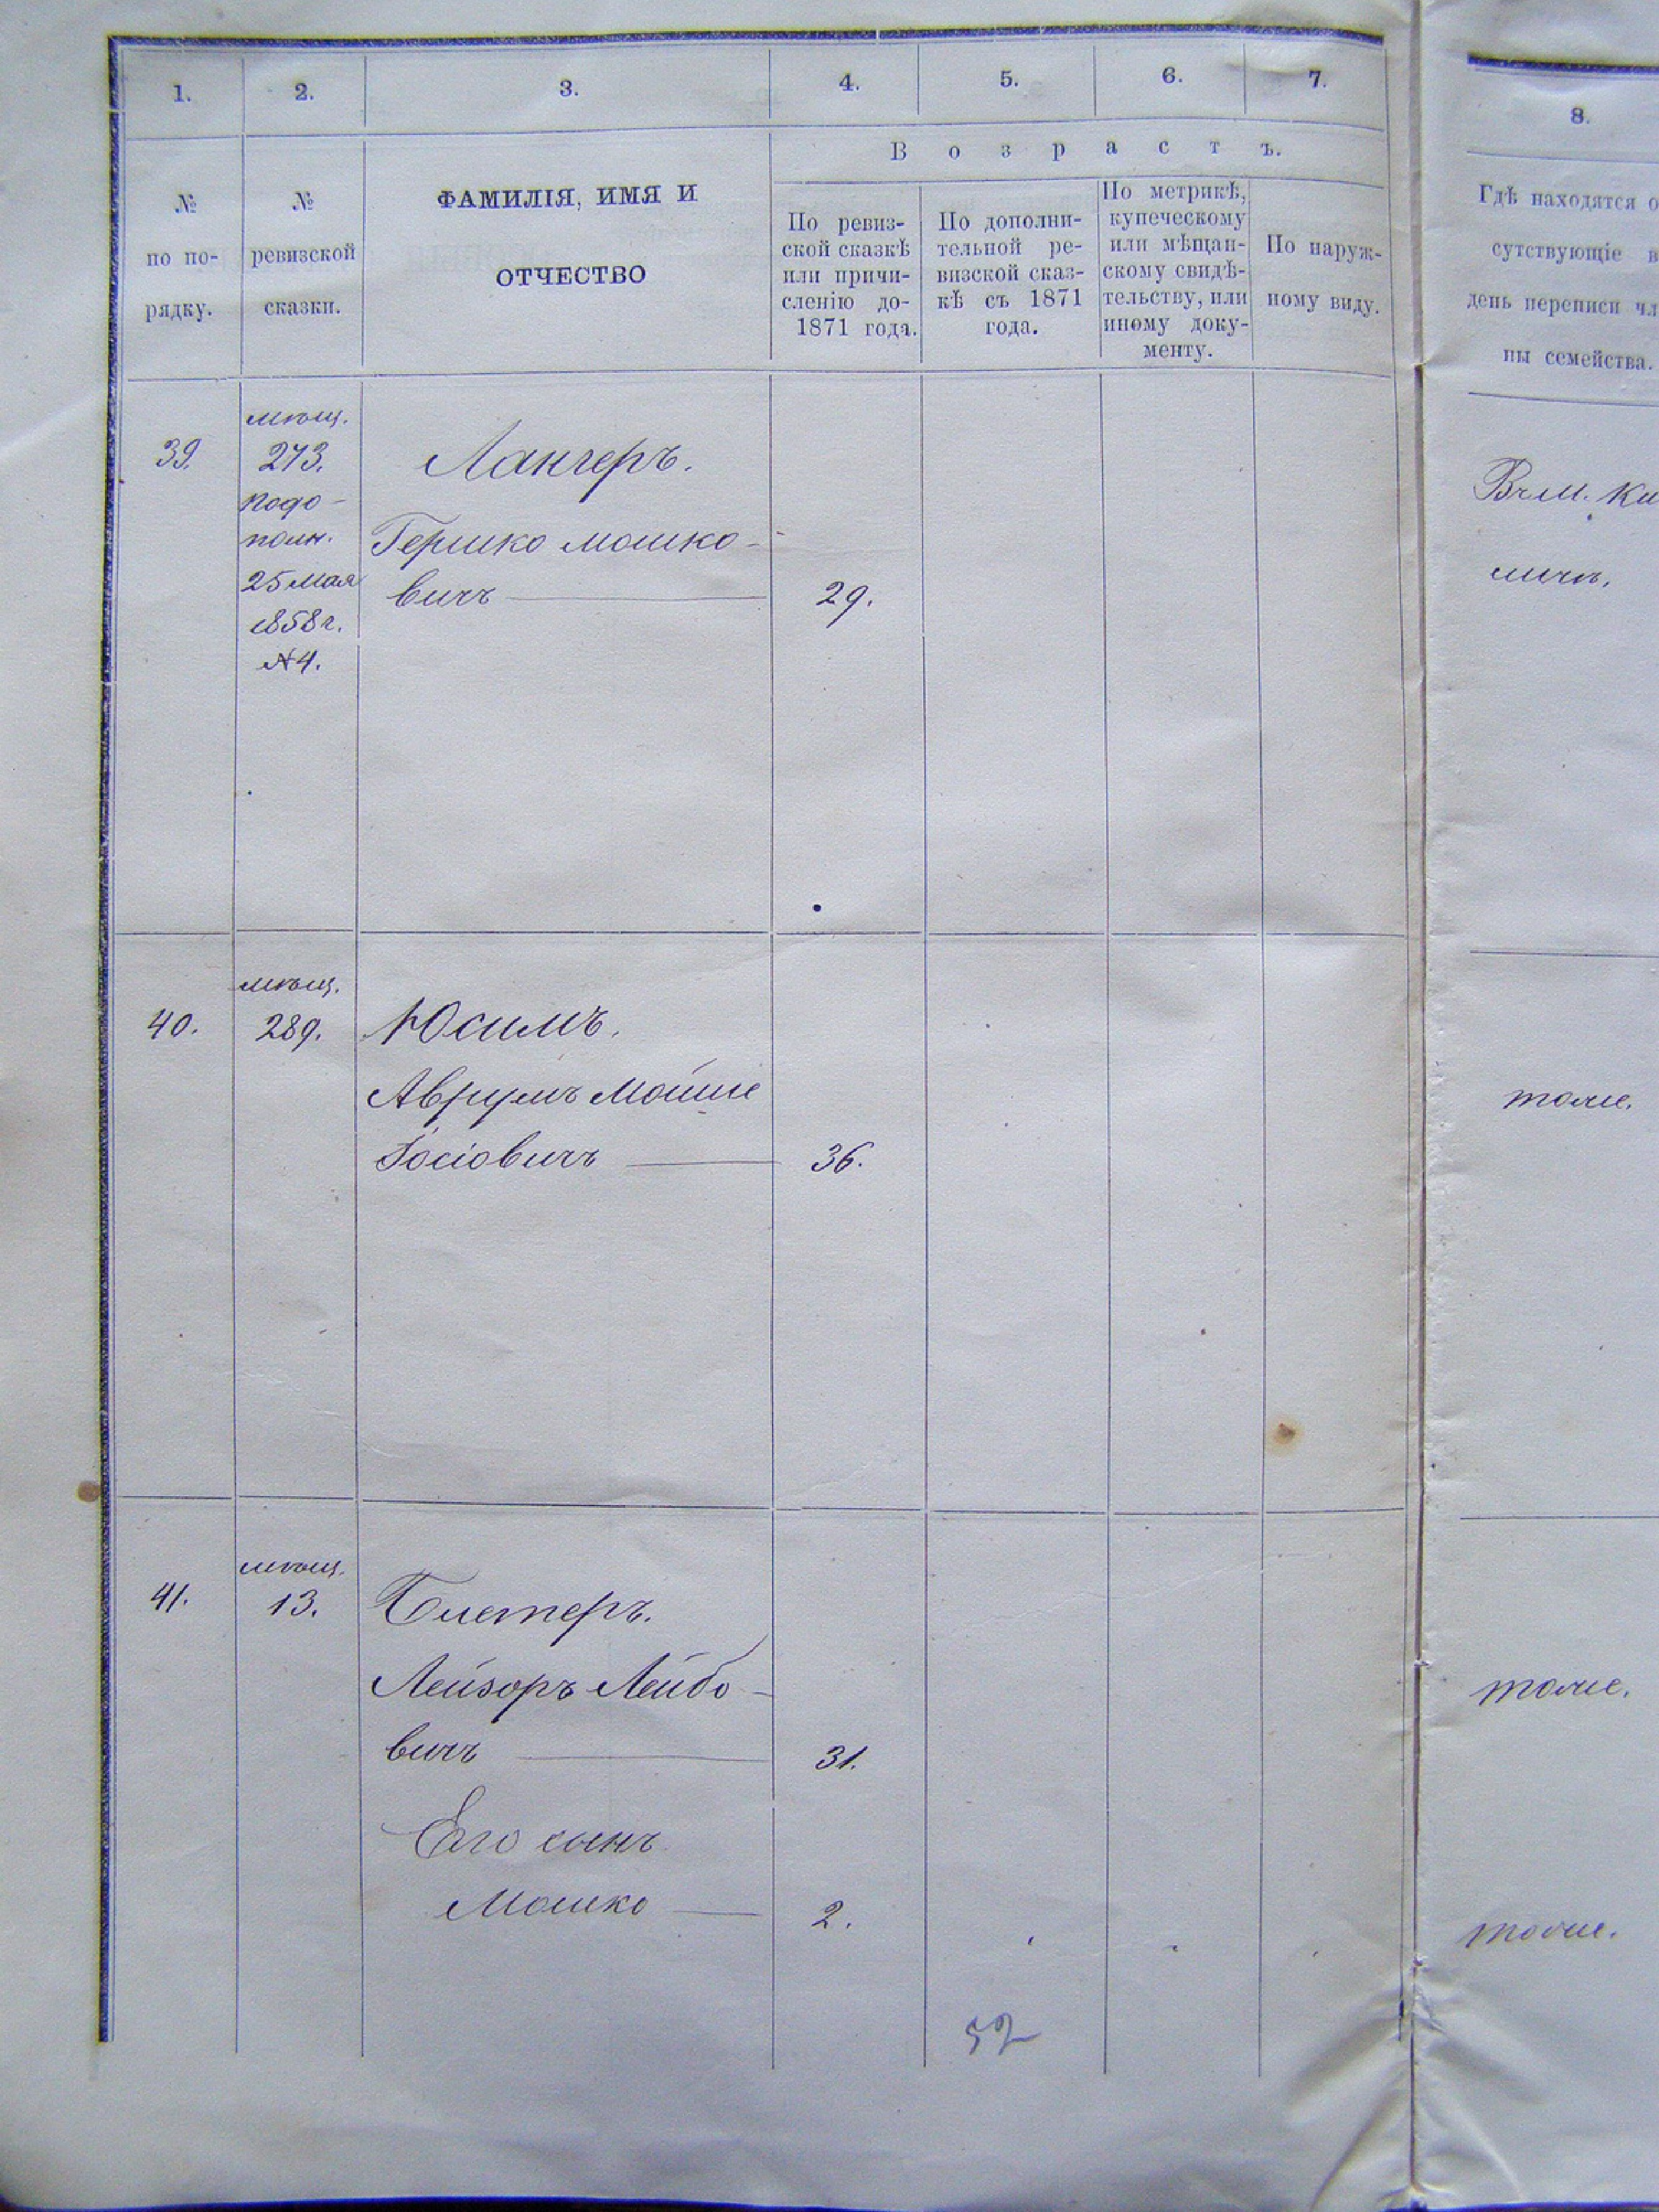 1. 2. 3. 4. 5. 6. 7.
8.
В о з р а с т ъ.
№
по по-
рядку.
№
ревизской
сказки.
ФАМИЛІЯ, ИМЯ И
ОТЧЕСТВО
По ревиз-
ской сказкѣ
или причи-
сленію до-
1871 года.
По дополни-
тельной ре-
визской сказ-
кѣ съ 1871
года.
По метрикѣ,
купеческому
или мѣщан-
скому свидѣ-
тельству, или
иному доку-
менту.
По наруж-
ному виду.
Гдѣ находятся о
сутствующіе в
день переписи чл
ны семейства.
39.
мѣщ.
273.
подо-
полн.
25 Мая
1858 г.
№ 4.
Лангеръ.
Гершко Мошко-
вичъ 29.
40.
мѣщ.
289.
Юсимъ.
Аврумъ Мойше
Іосіовичъ 36.
тоже.
41.
мѣщ.
13.
Блетеръ.
Лейзоръ Лейбо-
вичъ 31.
тоже.
Его сынъ
Мошко 2.
тоже.
52